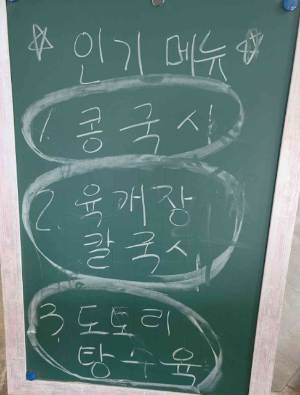 ☆ 인기 메뉴 ☆
1. 콩국시
2. 육개장
칼국시
3. 도토리
탕수육